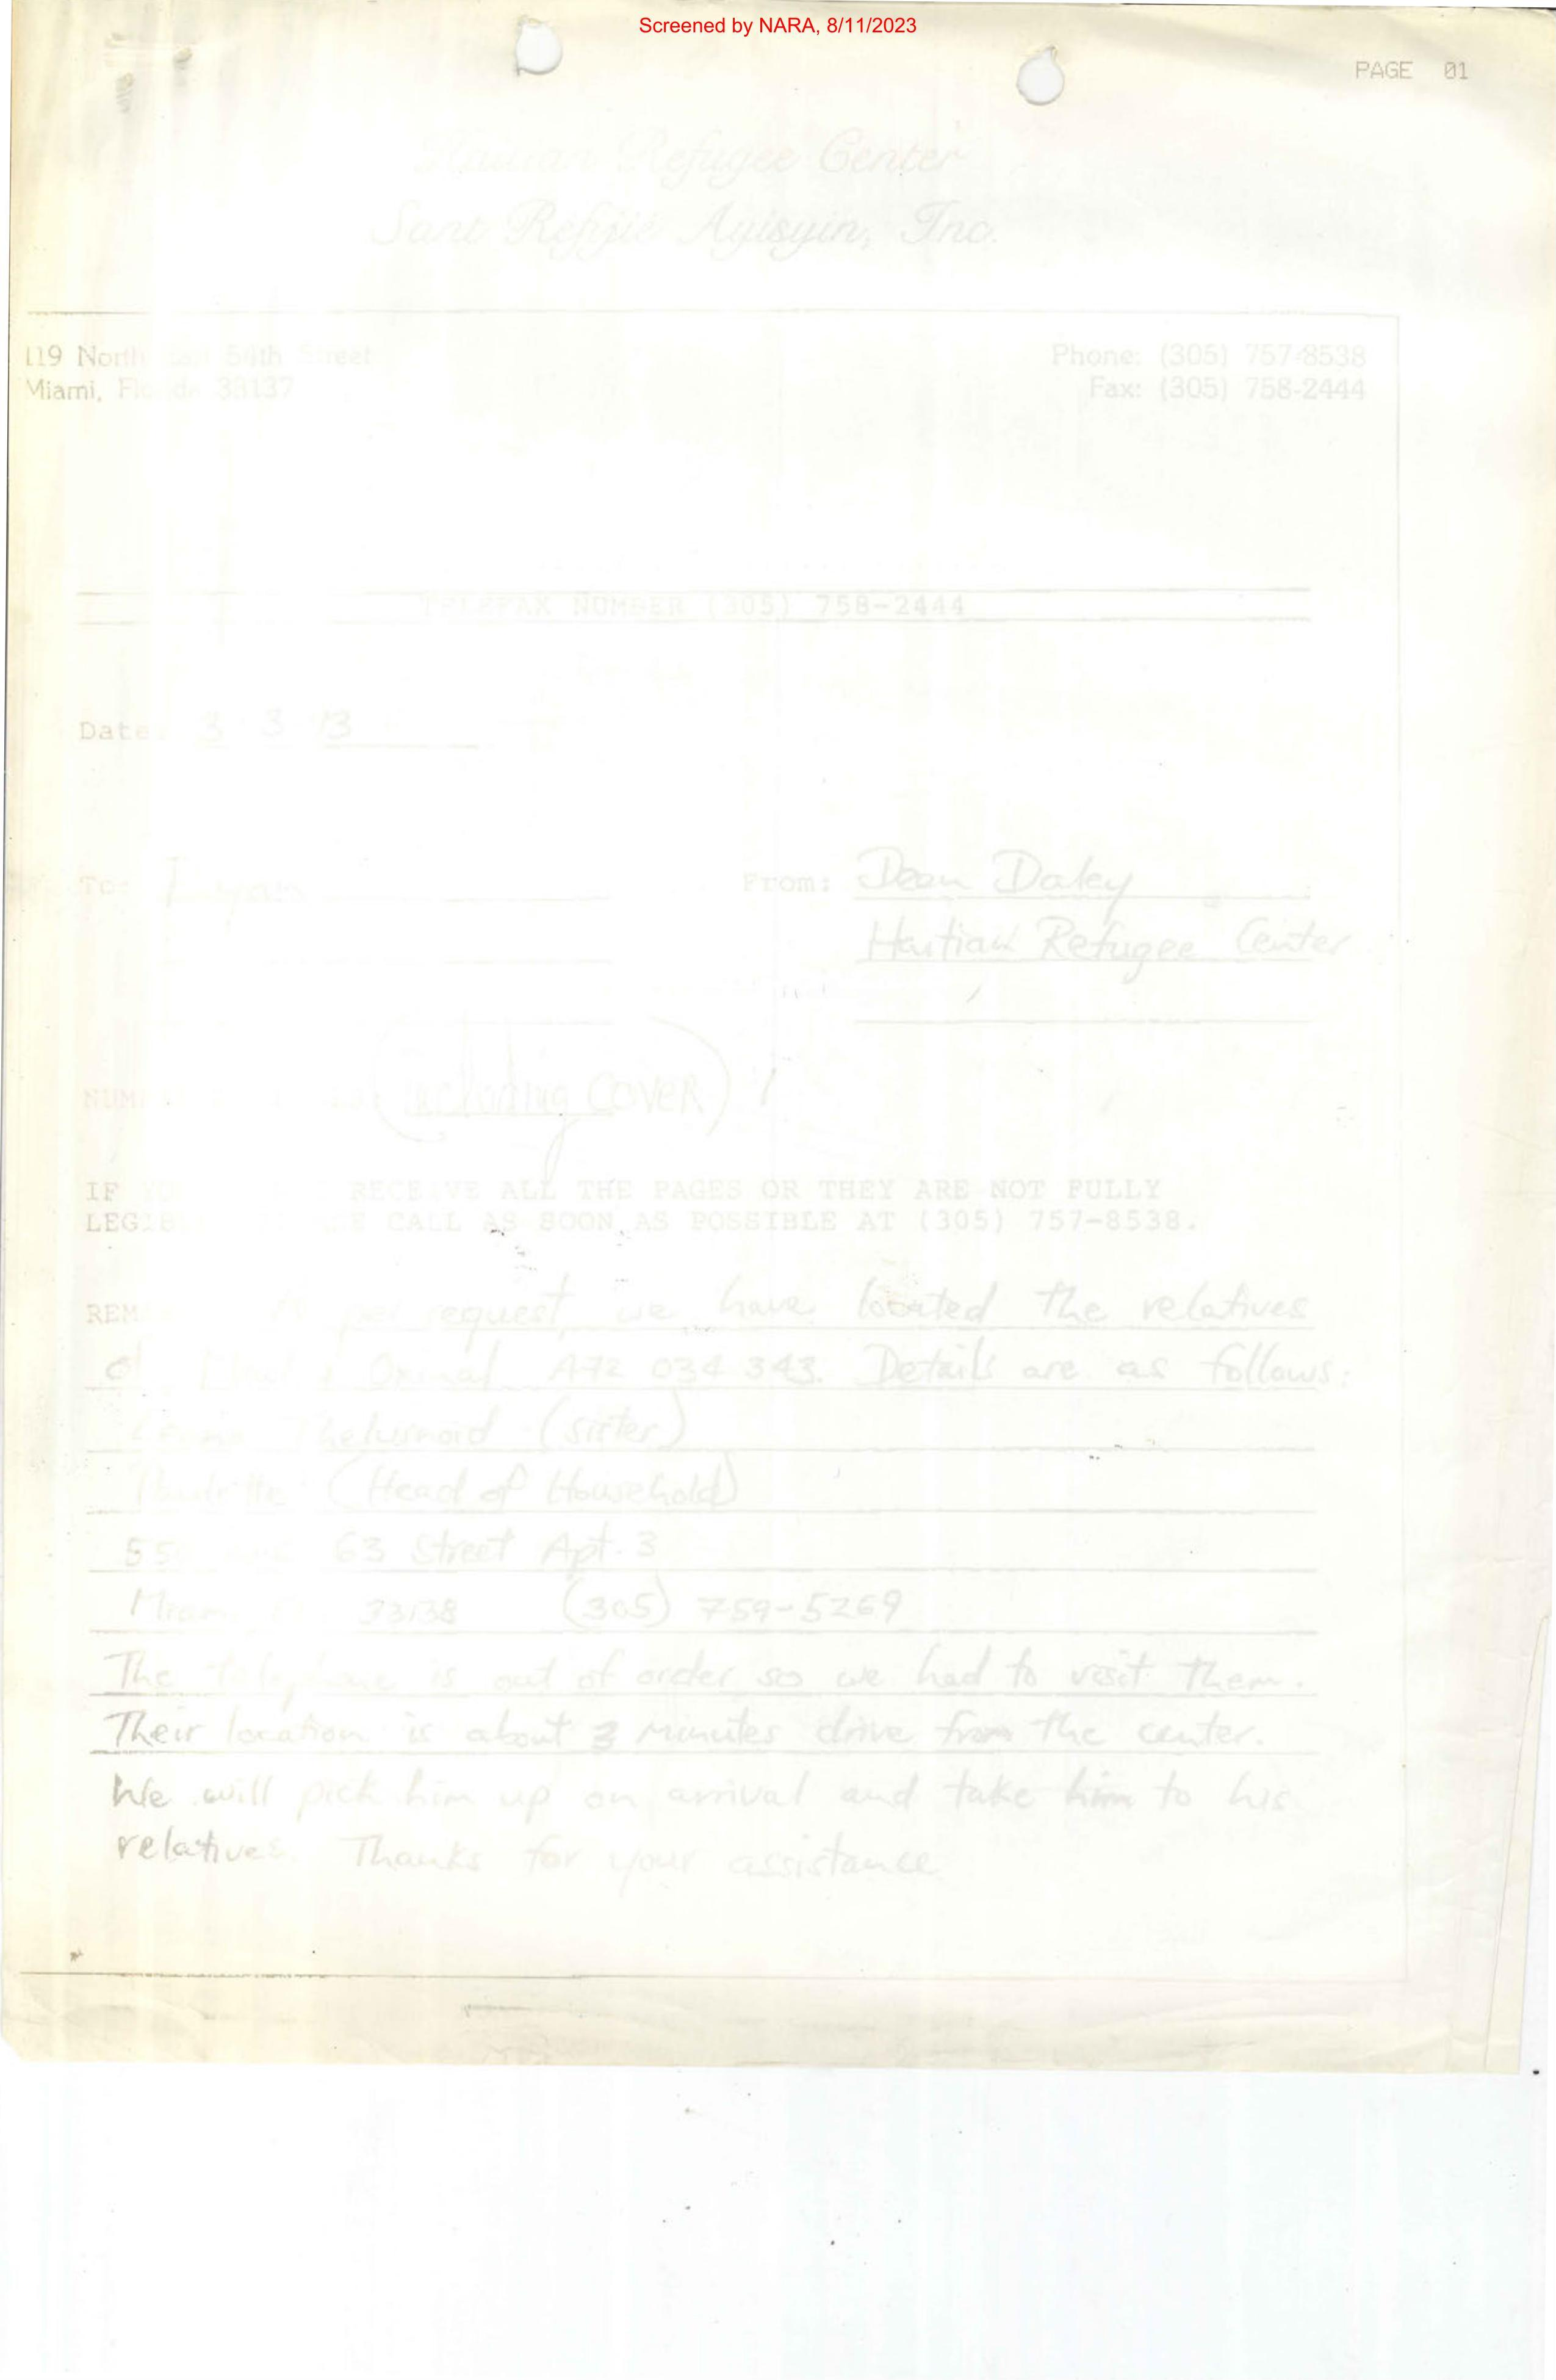 Screened by NARA, 8/11/2023
PAGE 01
Haitian Refugee Center
Sant Refijie Ayisyin, Inc.
119 North East 54th Street
Phone: (305) 757-8538
Miami, Florida 33137
Fax: (305) 758-2444
TELEFAX NUMBER (305) 758-2444
Date: 3 3 93
To:
From: Dean Daley
Haitian Refugee Center
(including COVER) 1
IF RECEIVE ALL THE PAGES OR THEY ARE NOT FULLY
CALL AS SOON AS POSSIBLE AT (305) 757-8538.
per request, we have located the relatives
A72 034 343. Details are as follows:
(sister)
(Head of Household)
63 Street Apt. 3
Miami 33138 (305) 759-5269
The telephone is out of order so we had to visit them.
Their location is about 3 minutes drive from the center.
We will pick him up on arrival and take him to his
relatives. Thanks for your assistance